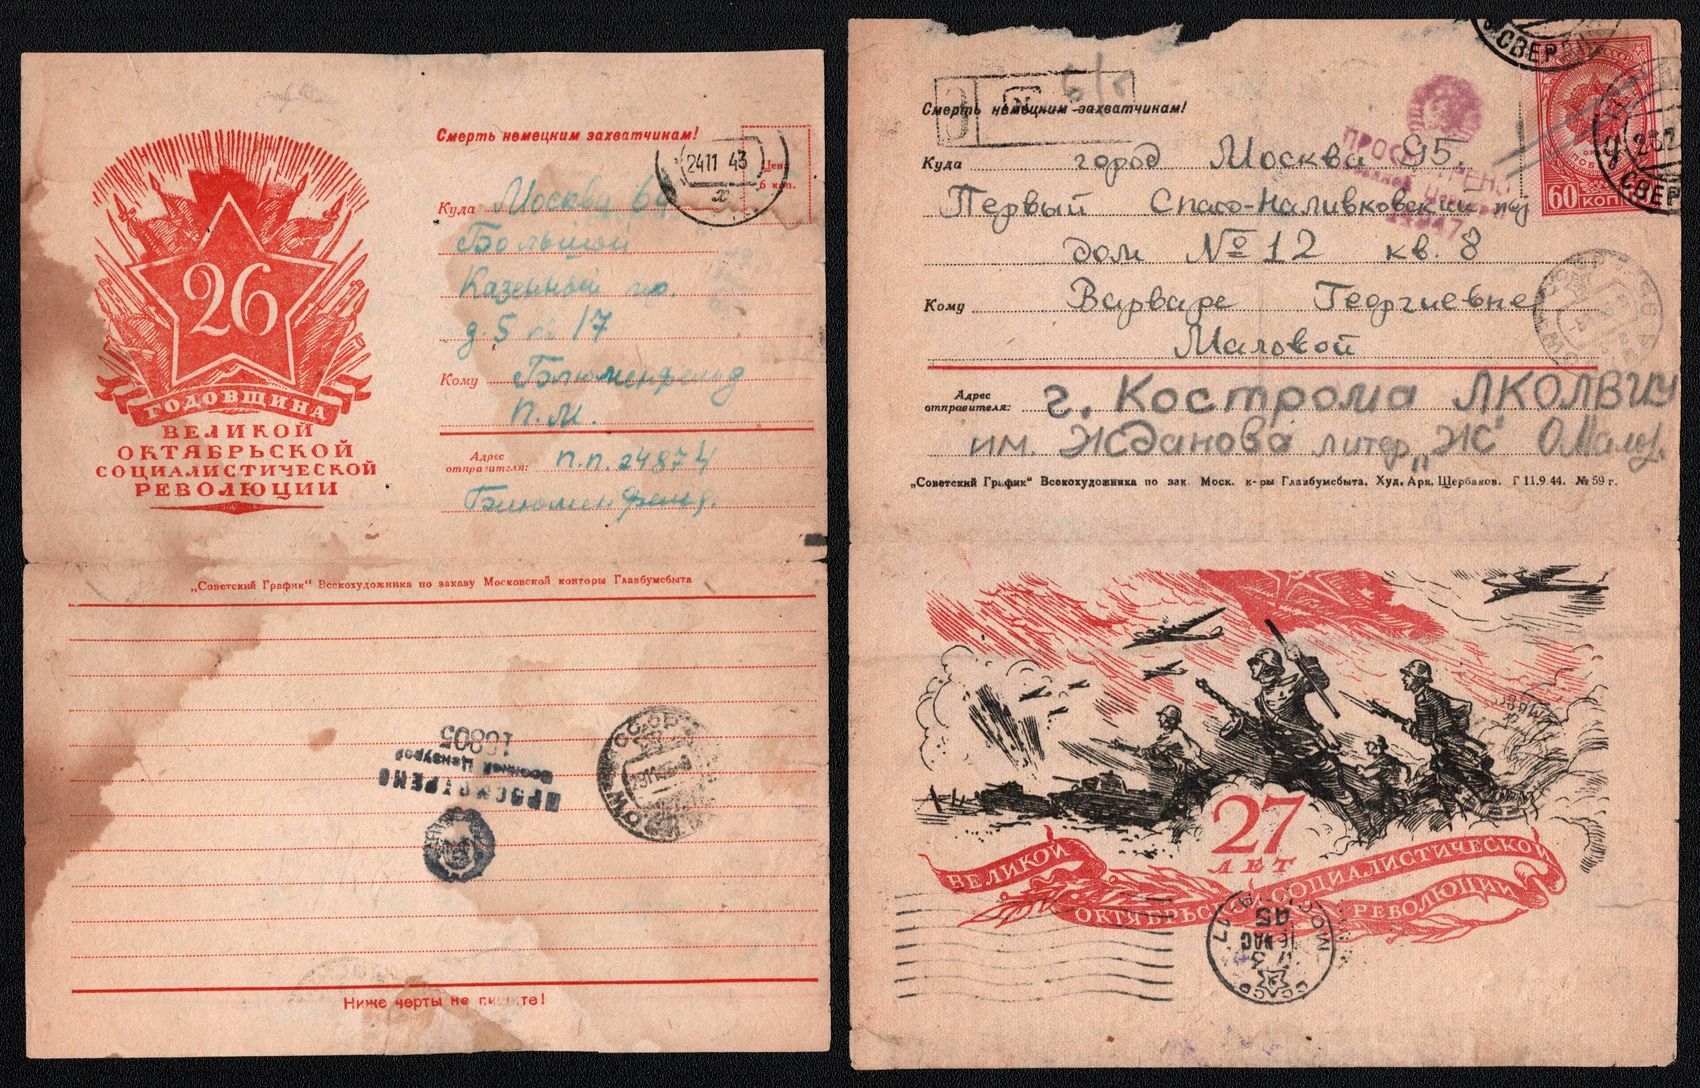 26
ГОДОВЩИНА
ВЕЛИКОЙ
ОКТЯБРЬСКОЙ
СОЦИАЛИСТИЧЕСКОЙ
РЕВОЛЮЦИИ
Смерть немецким захватчикам!
24 11 43
Цена
6 коп.
Куда Москва 64
Большой
Казенный пр.
д. 5 кв 17
Кому Блюменфельд
П.М.
Адрес отправителя: п.п. 24874
Блюменфельд.
„Советский График" Всекохудожника по заказу Московской конторы Главбумсбыта
ПРОСМОТРЕНО
Военной Цензурой
16805
МОСКВА
Ниже черты не пишите!
Смерть немецким захватчикам!
З
№
СВЕРДЛ
60 КОП
ПРОСМОТРЕНО
Военной Цензурой
Куда город Москва 95.
Первый Спасо-Наливковский пер
дом № 12 кв. 8
Кому Варваре Георгиевне
Маловой
Адрес отправителя: г. Кострома ЛКОЛВИУ
им. Жданова литер „Ж"
„Советский График" Всекохудожника по зак. Моск. к-ры Главбумсбыта. Худ. Арк. Щербаков. Г 11.9.44. № 59 г.
27
ЛЕТ
ВЕЛИКОЙ
ОКТЯБРЬСКОЙ СОЦИАЛИСТИЧЕСКОЙ
РЕВОЛЮЦИИ
МОСКВА
45